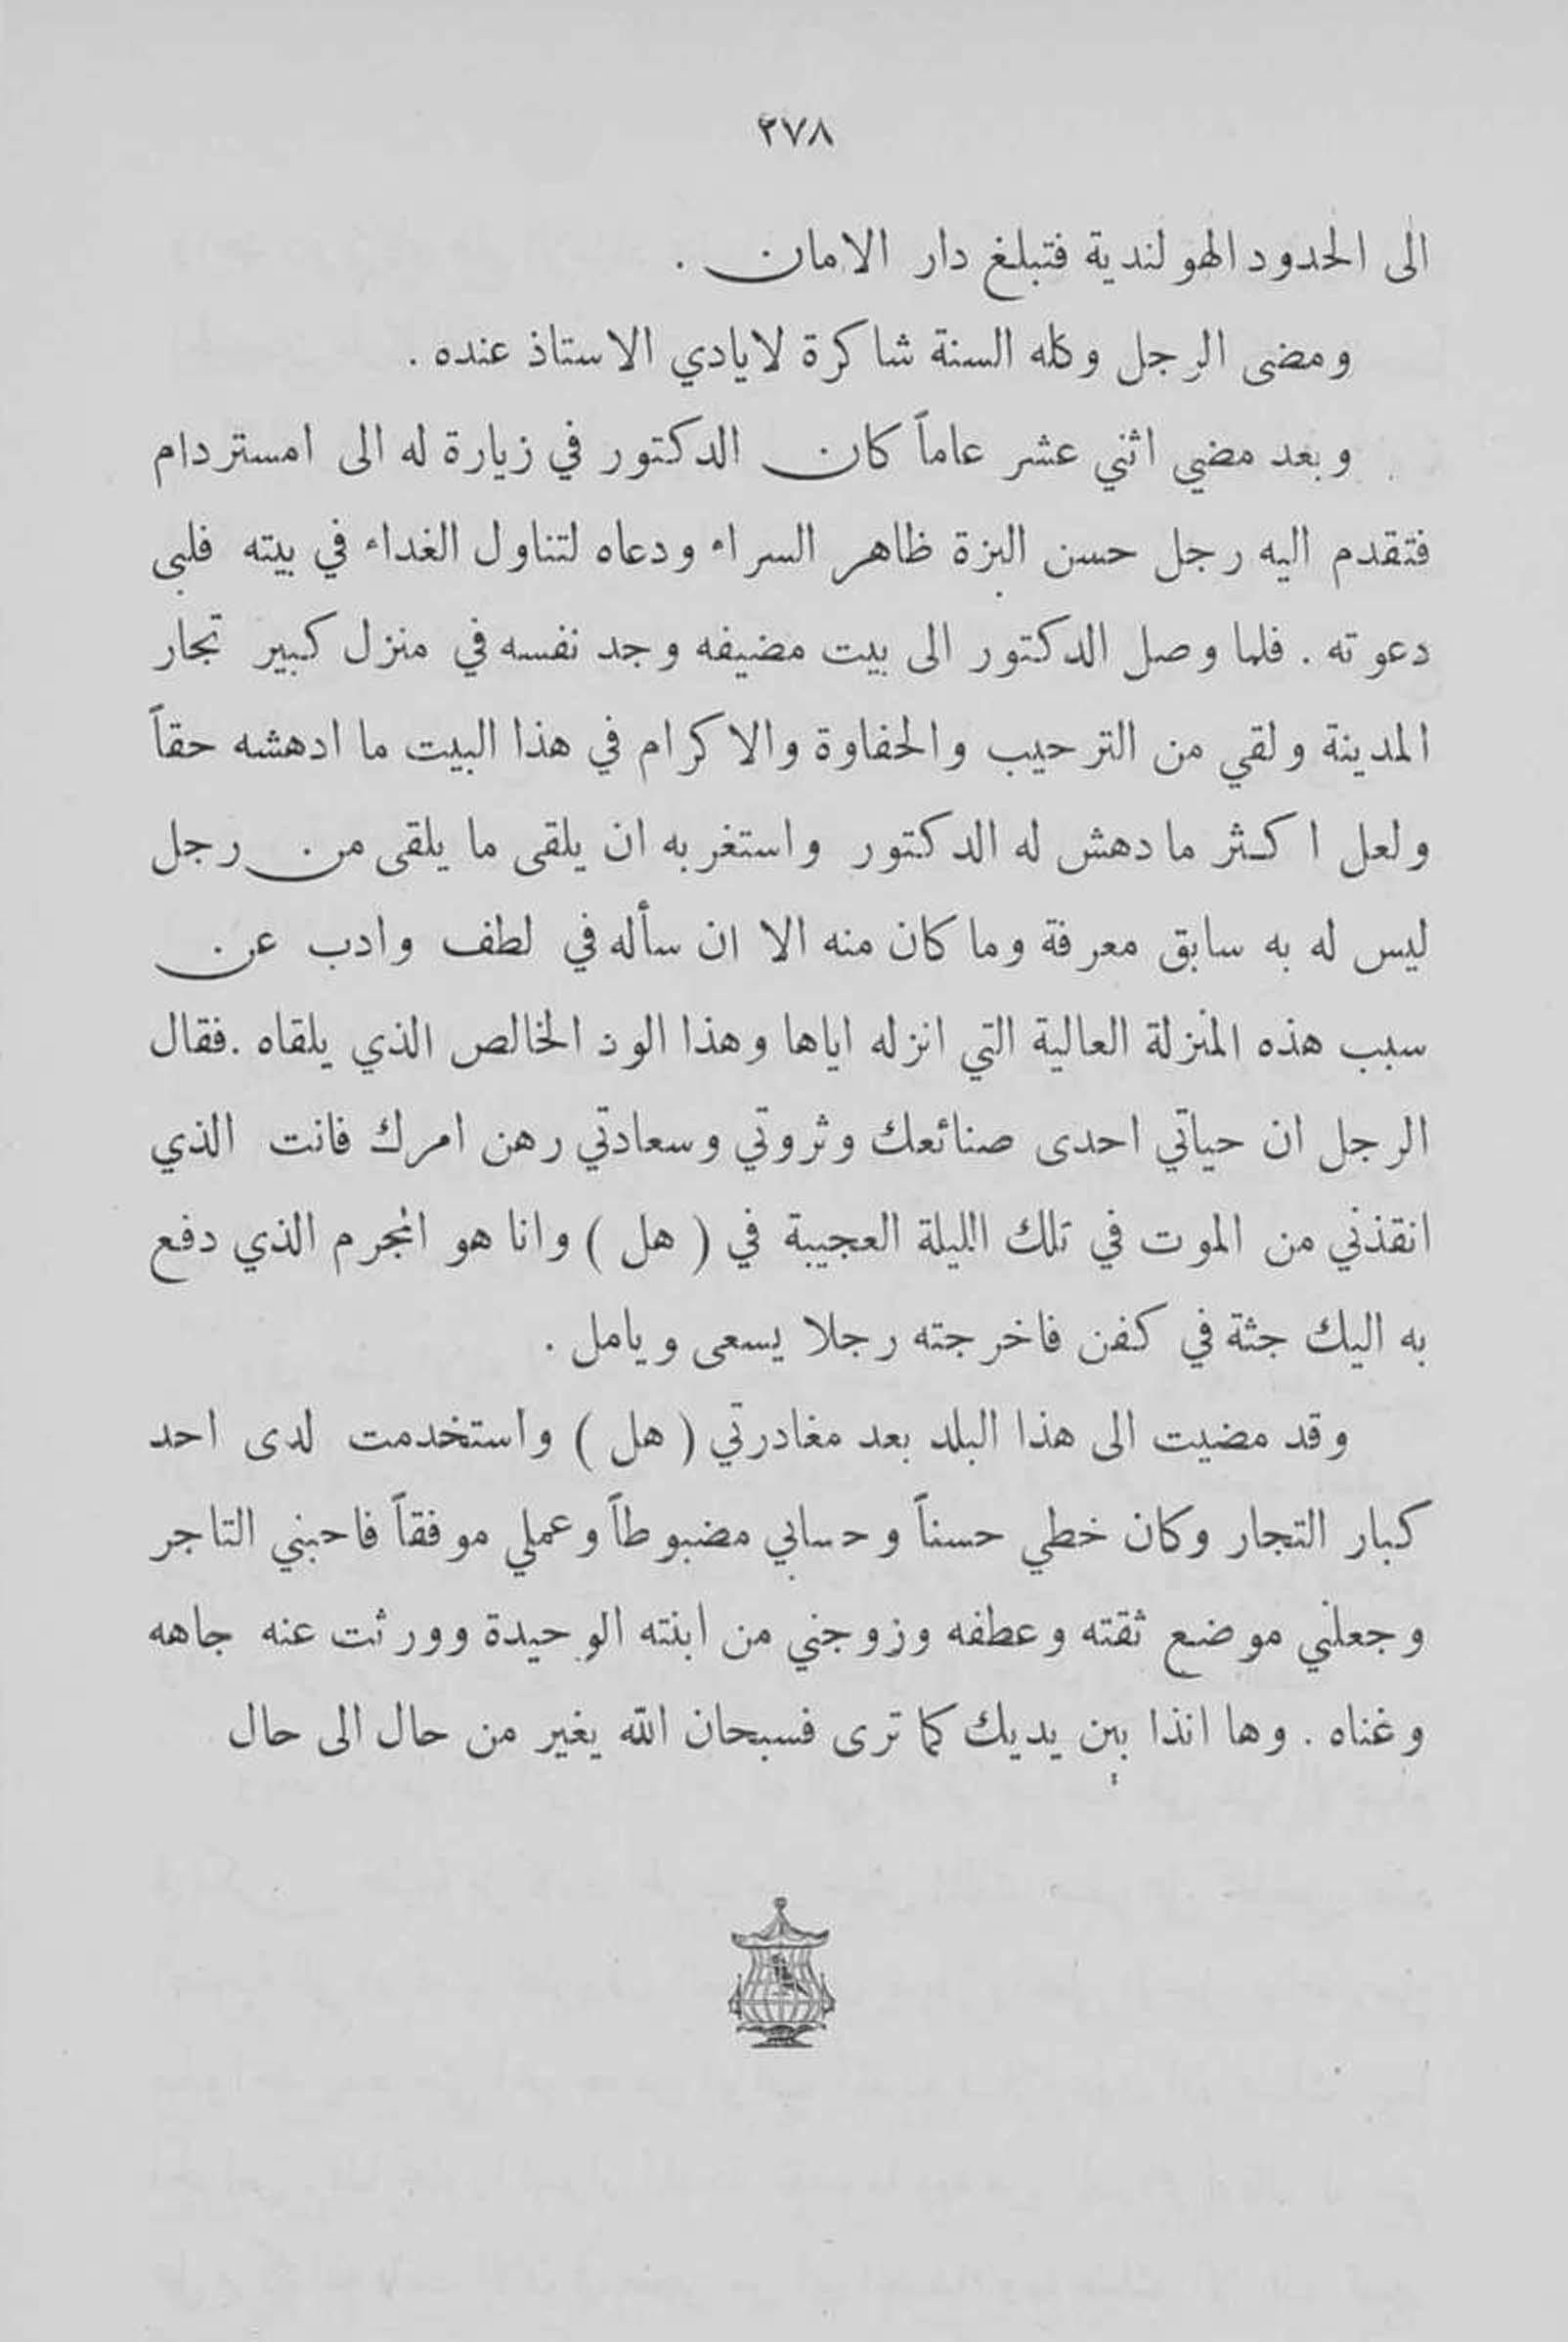 ٢٧٨
الى الحدود الهولندية فتبلغ دار الامان .
ومضى الرجل وكله السنة شاكرة لايادي الاستاذ عنده .
وبعد مضي اثني عشر عاماً كان الدكتور في زيارة له الى امستردام
فتقدم اليه رجل حسن البزة ظاهر السراء ودعاه لتناول الغداء في بيته فلبى
دعوته . فلما وصل الدكتور الى بيت مضيفه وجد نفسه في منزل كبير تجار
المدينة ولقي من الترحيب والحفاوة والاكرام في هذا البيت ما ادهشه حقاً
ولعل اكثر ما دهش له الدكتور واستغر به ان يلقى ما يلقى من رجل
ليس له به سابق معرفة وما كان منه الا ان سأله في لطف وادب عن
سبب هذه المنزلة العالية التي انزله اياها وهذا الود الخالص الذي يلقاه . فقال
الرجل ان حياتي احدى صنائعك وثروتي وسعادتي رهن امرك فانت الذي
انقذني من الموت في تلك الليلة العجيبة في ( هل ) وانا هو المجرم الذي دفع
به اليك جثة في كفن فاخرجته رجلا يسعى ويامل .
وقد مضيت الى هذا البلد بعد مغادرتي ( هل ) واستخدمت لدى احد
كبار التجار وكان خطي حسناً وحسابي مضبوطاً وعملي موفقاً فاحبني التاجر
وجعلني موضع ثقته وعطفه وزوجني من ابنته الوحيدة وورثت عنه جاهه
وغناه . وها انذا بين يديك كما ترى فسبحان الله يغير من حال الى حال